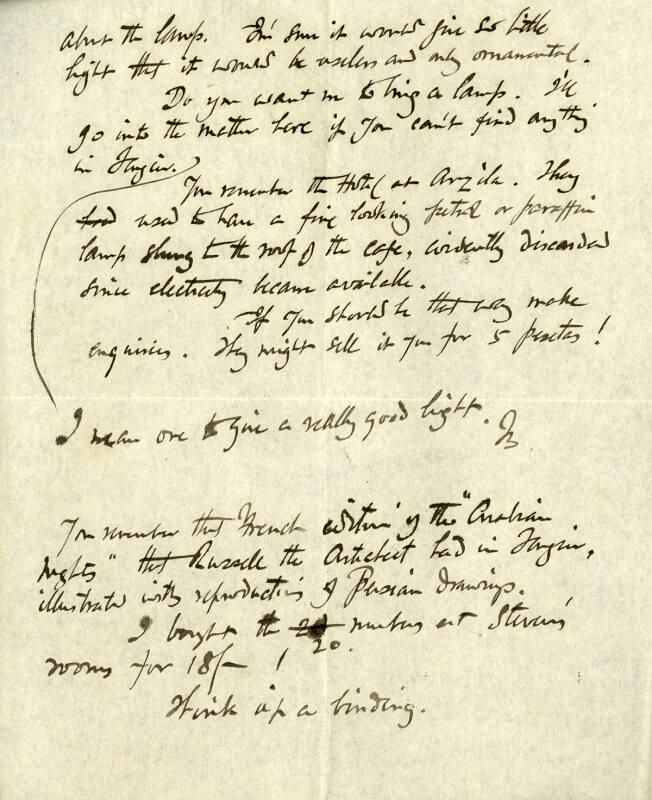 about the lamp. I'm sure it would give so little
light that it would be useless and only ornamental.
Do you want me to bring a lamp. I'll
go into the matter here if you can't find anything
in Tangier.
You remember the Hotel at Arzila. They
had used to have a fine looking petrol or paraffin
lamp slung to the roof of the cafe, evidently discarded
since electricity became available.
If you should be that way make
enquiries. They might sell it you for 5 pesetas!
I mean one to give a really good light.
You remember that French edition of the "Arabian
Nights" that Russell the Architect had in Tangier,
illustrated with reproductions of Persian drawings.
I bought the numbers at Stevens'
20.
rooms for 18/– !
Think up a binding.